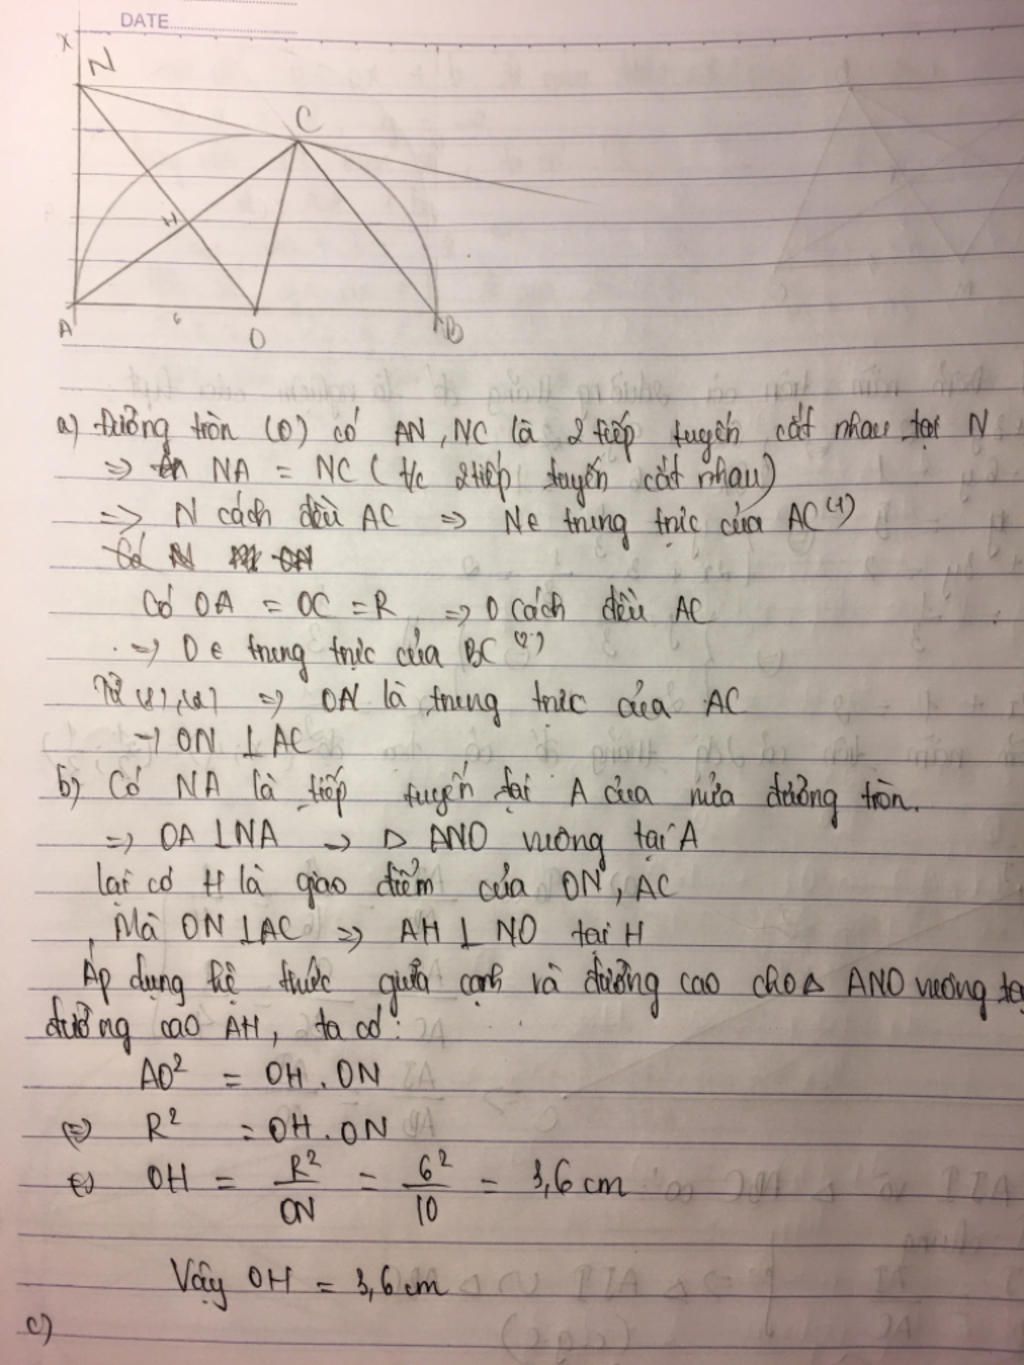 DATE
x
N
C
H
A
6
O
B
a) Đường tròn (O) có AN, NC là 2 tiếp tuyến cắt nhau tại N
=> NA = NC (t/c 2 tiếp tuyến cắt nhau)
=> N cách đều AC => N ∈ trung trực của AC (1)
Có OA = OC = R => O cách đều AC
=> O ∈ trung trực của BC (2)
Từ (1), (2) => ON là trung trực của AC
→ ON ⊥ AC
b) Có NA là tiếp tuyến tại A của nửa đường tròn.
=> OA ⊥ NA → Δ ANO vuông tại A
lại có H là giao điểm của ON, AC
Mà ON ⊥ AC => AH ⊥ NO tại H
Áp dụng hệ thức giữa cạnh và đường cao cho Δ ANO vuông
đường cao AH, ta có:
AO² = OH . ON
(=) R² = OH . ON
(=) OH = R²/ON = 6²/10 = 3,6 cm
Vậy OH = 3,6 cm
c)